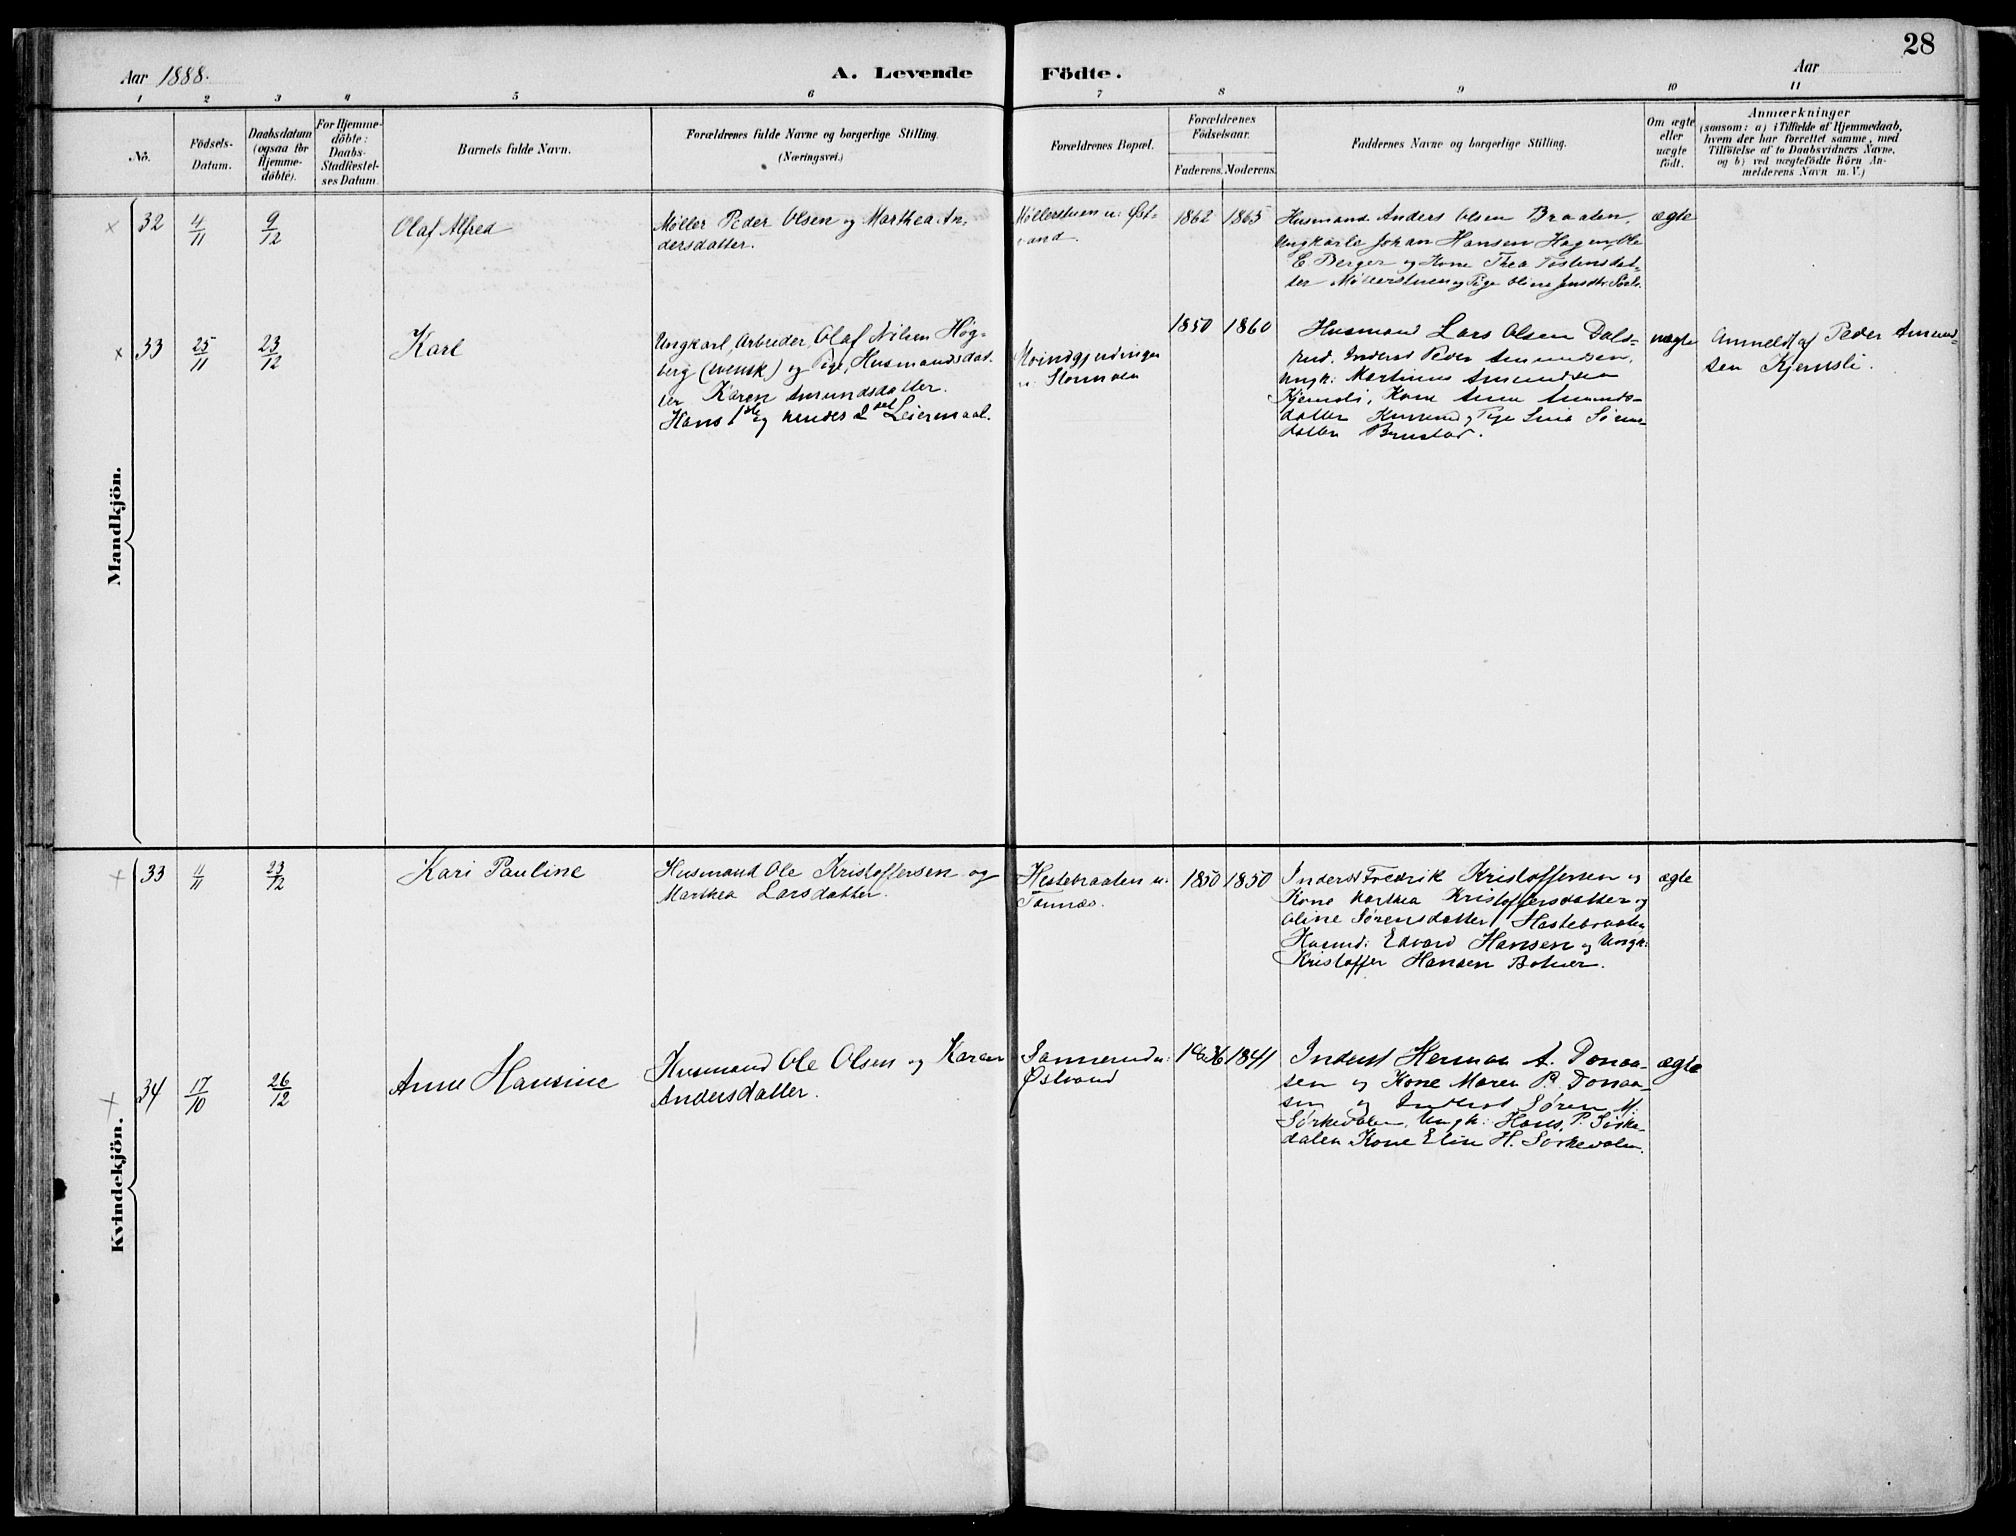 28
Aar 1888.
A. Levende Födte.
Aar
1 2 3 4 5 6 7 8 9 10 11
No.
Födsels-
Datum.
Daabsdatum
(ogsaa for
Hjemme-
döbte).
For Hjemme-
döbte:
Daabs-
Stadfæstel-
ses Datum.
Barnets fulde Navn.
Forældrenes fulde Navne og borgerlige Stilling.
(Næringsvei.)
Forældrenes Bopæl.
Forældrenes
Födselsaar.
Faderens. Moderens.
Faddernes Navne og borgerlige Stilling.
Om ægte
eller
uægte
født.
Anmærkninger
(saasom: a) i Tilfælde af Hjemmedaab,
hvem der har forrettet samme, med
Tilföielse af to Daabsvidners Navne,
og b) ved uægtefödte Börn An-
melderens Navn m. V.)
Mandkjön.
× 32
4/11
9/12
Olaf Alfred
Møller Peder Olsen og Marthea An-
dersdatter.
Møllerstuen u: Øst-
vand.
1862 1865
Husmand Anders Olsen Braaten,
Ungkarle Johan Hansen Hagen, Ole
E. Berger og Kone Thea Tostensdat-
ter Møllerstuen og Pige Oline Jensdtr.
ægte
× 33
25/11
23/12
Karl
Ungkarl, Arbeider, Olaf Nilsen Høg-
berg (svensk) og Pige, Husmandsdat-
ter Karen Amundsdatter.
Hans 1ste og hendes 2det Leiermaal.
u. Stormoen
1850 1860
Husmand Lars Olsen Dals-
rud, Inderst Peder Amundsen,
Ungk: Martinus Amundsen
Kjernsli, Kone Anne Amunds-
datter og Pige Lina Sørens-
datter
uægte
Anmeldt af Peder Amund-
sen Kjernsli.
Kvindekjön.
× 33
11/11
23/12
Kari Pauline
Husmand Ole Kristoffersen og
Marthea Larsdatter.
Hestebraaten u:
Tannæs.
1850 1850
Inderst Fredrik Kristoffersen og
Kone Marthea Kristoffersdatter og
Oline Sørensdatter Hestebraaten,
Husmd: Edvard Hansen og Ungk:
Kristoffer Hansen
ægte
× 34
17/10
26/12
Anne Hansine
Husmand Ole Olsen og Karen
Andersdatter.
Sannerud u:
Østvand
1836 1841
Inderst Herman A. Donaa-
sen og Kone Maren P. Donaa-
sen og Inderst Søren M.
Sørkedalen, Ungk: Hans P. Sørke-
dalen Kone Elise H. Sørkedalen.
ægte